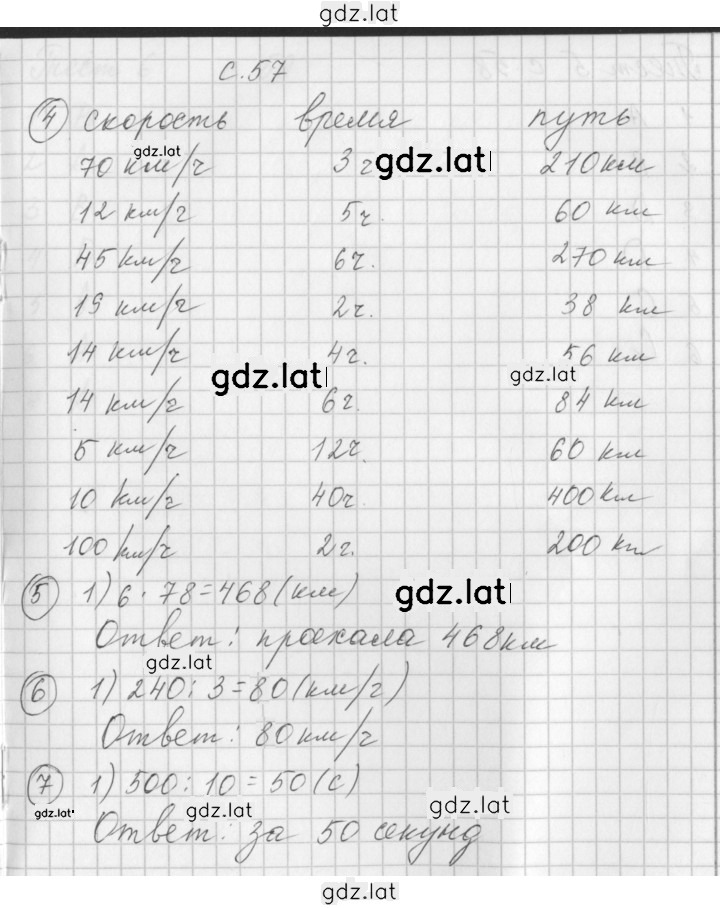 gdz.lat
с.57
4 скорость время путь
gdz.lat
70 км/ч 3 ч gdz.lat 210 км
12 км/ч 5ч. 60 км
45 км/ч 6ч. 270 км
19 км/ч 2ч. 38 км
14 км/ч 4ч. 56 км
gdz.lat gdz.lat
14 км/ч 6ч. 84 км
5 км/ч 12ч. 60 км
10 км/ч 40ч. 400 км
100 км/ч 2ч. 200 км
5 1) 6 · 78 = 468 (км) gdz.lat
Ответ: проехала 468 км
gdz.lat
6 1) 240 : 3 = 80 (км/ч)
Ответ: 80 км/ч
7 1) 500 : 10 = 50 (с)
gdz.lat gdz.lat gdz.lat
Ответ: за 50 секунд
gdz.lat